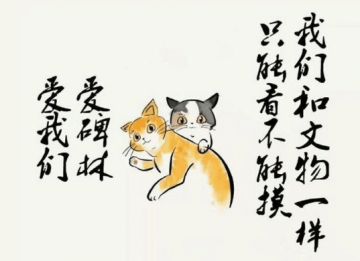 我们和文物一样
只能看不能摸
爱碑林
爱我们